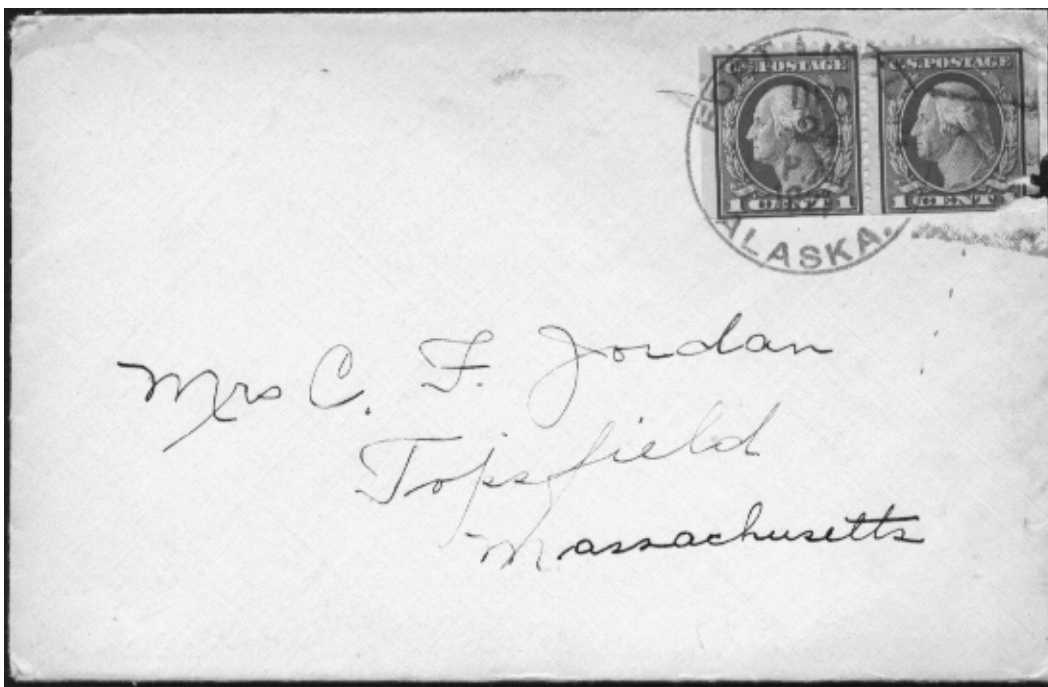 U.S. POSTAGE
U.S. POSTAGE
1 CENT 1
1 CENT
ALASKA.
Mrs C. F. Jordan
Topsfield
Massachusetts